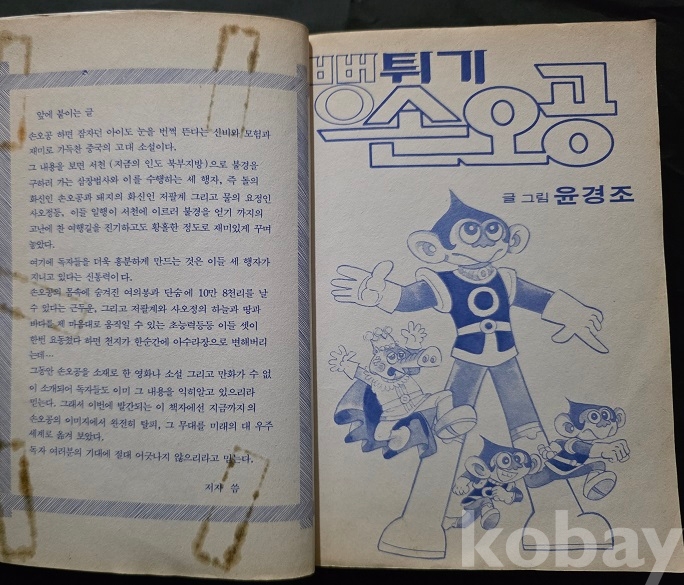 앞에 붙이는 글
손오공 하면 잠자던 아이도 눈을 번쩍 뜬다는 신비와 모험과
재미로 가득찬 중국의 고대 소설이다.
그 내용을 보면 서천 (지금의 인도 북부지방) 으로 불경을
구하러 가는 삼장법사와 이를 수행하는 세 행자, 즉 돌의
화신인 손오공과 돼지의 화신인 저팔계 그리고 물의 요정인
사오정들, 이들 일행이 서천에 이르러 불경을 얻기 까지의
고난에 찬 여행길을 진기하고도 황홀한 정도로 재미있게 꾸며
놓았다.
여기에 독자들을 더욱 흥분하게 만드는 것은 이들 세 행자가
지니고 있다는 신통력이다.
손오공의 몸속에 숨겨진 여의봉과 단숨에 10만 8천리를 날
수 있다는 근두운, 그리고 저팔계와 사오정의 하늘과 땅과
바다를 제 마음대로 움직일 수 있는 초능력등등 이들 셋이
한번 요동쳤다 하면 천지가 한순간에 아수라장으로 변해버리
는데…
그동안 손오공을 소재로 한 영화나 소설 그리고 만화가 수 없
이 소개되어 독자들도 이미 그 내용을 익히알고 있으리라
믿는다. 그래서 이번에 발간되는 이 책자에선 지금까지의
손오공의 이미지에서 완전히 탈피, 그 무대를 미래의 대 우주
세계로 옮겨 보았다.
독자 여러분의 기대에 절대 어긋나지 않으리라고 믿는다.
저자 씀
뻥튀기
손오공
글 그림 윤경조
kobay